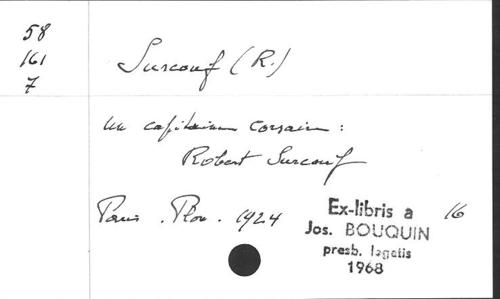 58
161
7
Surcouf (R.)
Un capitaine corsaire :
Robert Surcouf
Paris . Plon . 1924
16
Ex-libris a
Jos. BOUQUIN
presb. legatis
1968